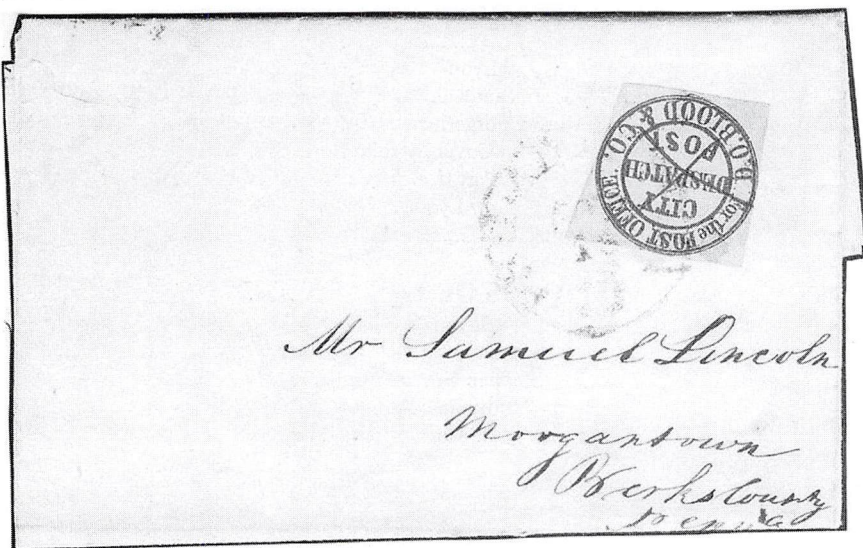 D.O. BLOOD & CO.
For the POST OFFICE.
CITY
DESPATCH
POST
Mr Samuel Lincoln
Morgantown
Berks County